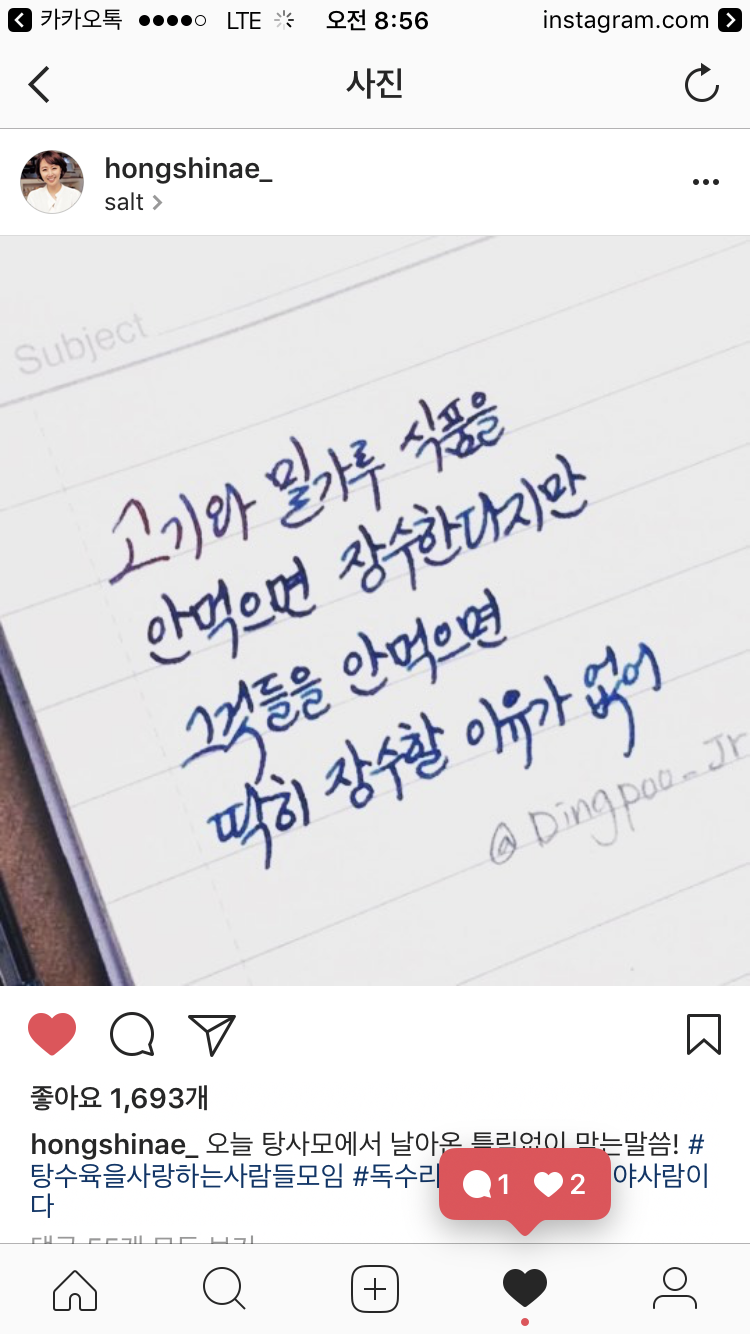 카카오톡 LTE 오전 8:56 instagram.com
사진
hongshinae_
salt
Subject
고기와 밀가루 식품을
안먹으면 장수한다지만
그것들을 안먹으면
딱히 장수할 이유가 없어
@Dingpoo_Jr
좋아요 1,693개
hongshinae_ 오늘 탕사모에서 날아온 틀림없이 맞는말씀! #
탕수육을사랑하는사람들모임 #독수리 야사람이
1 2
다
댓글 55개 모두 보기